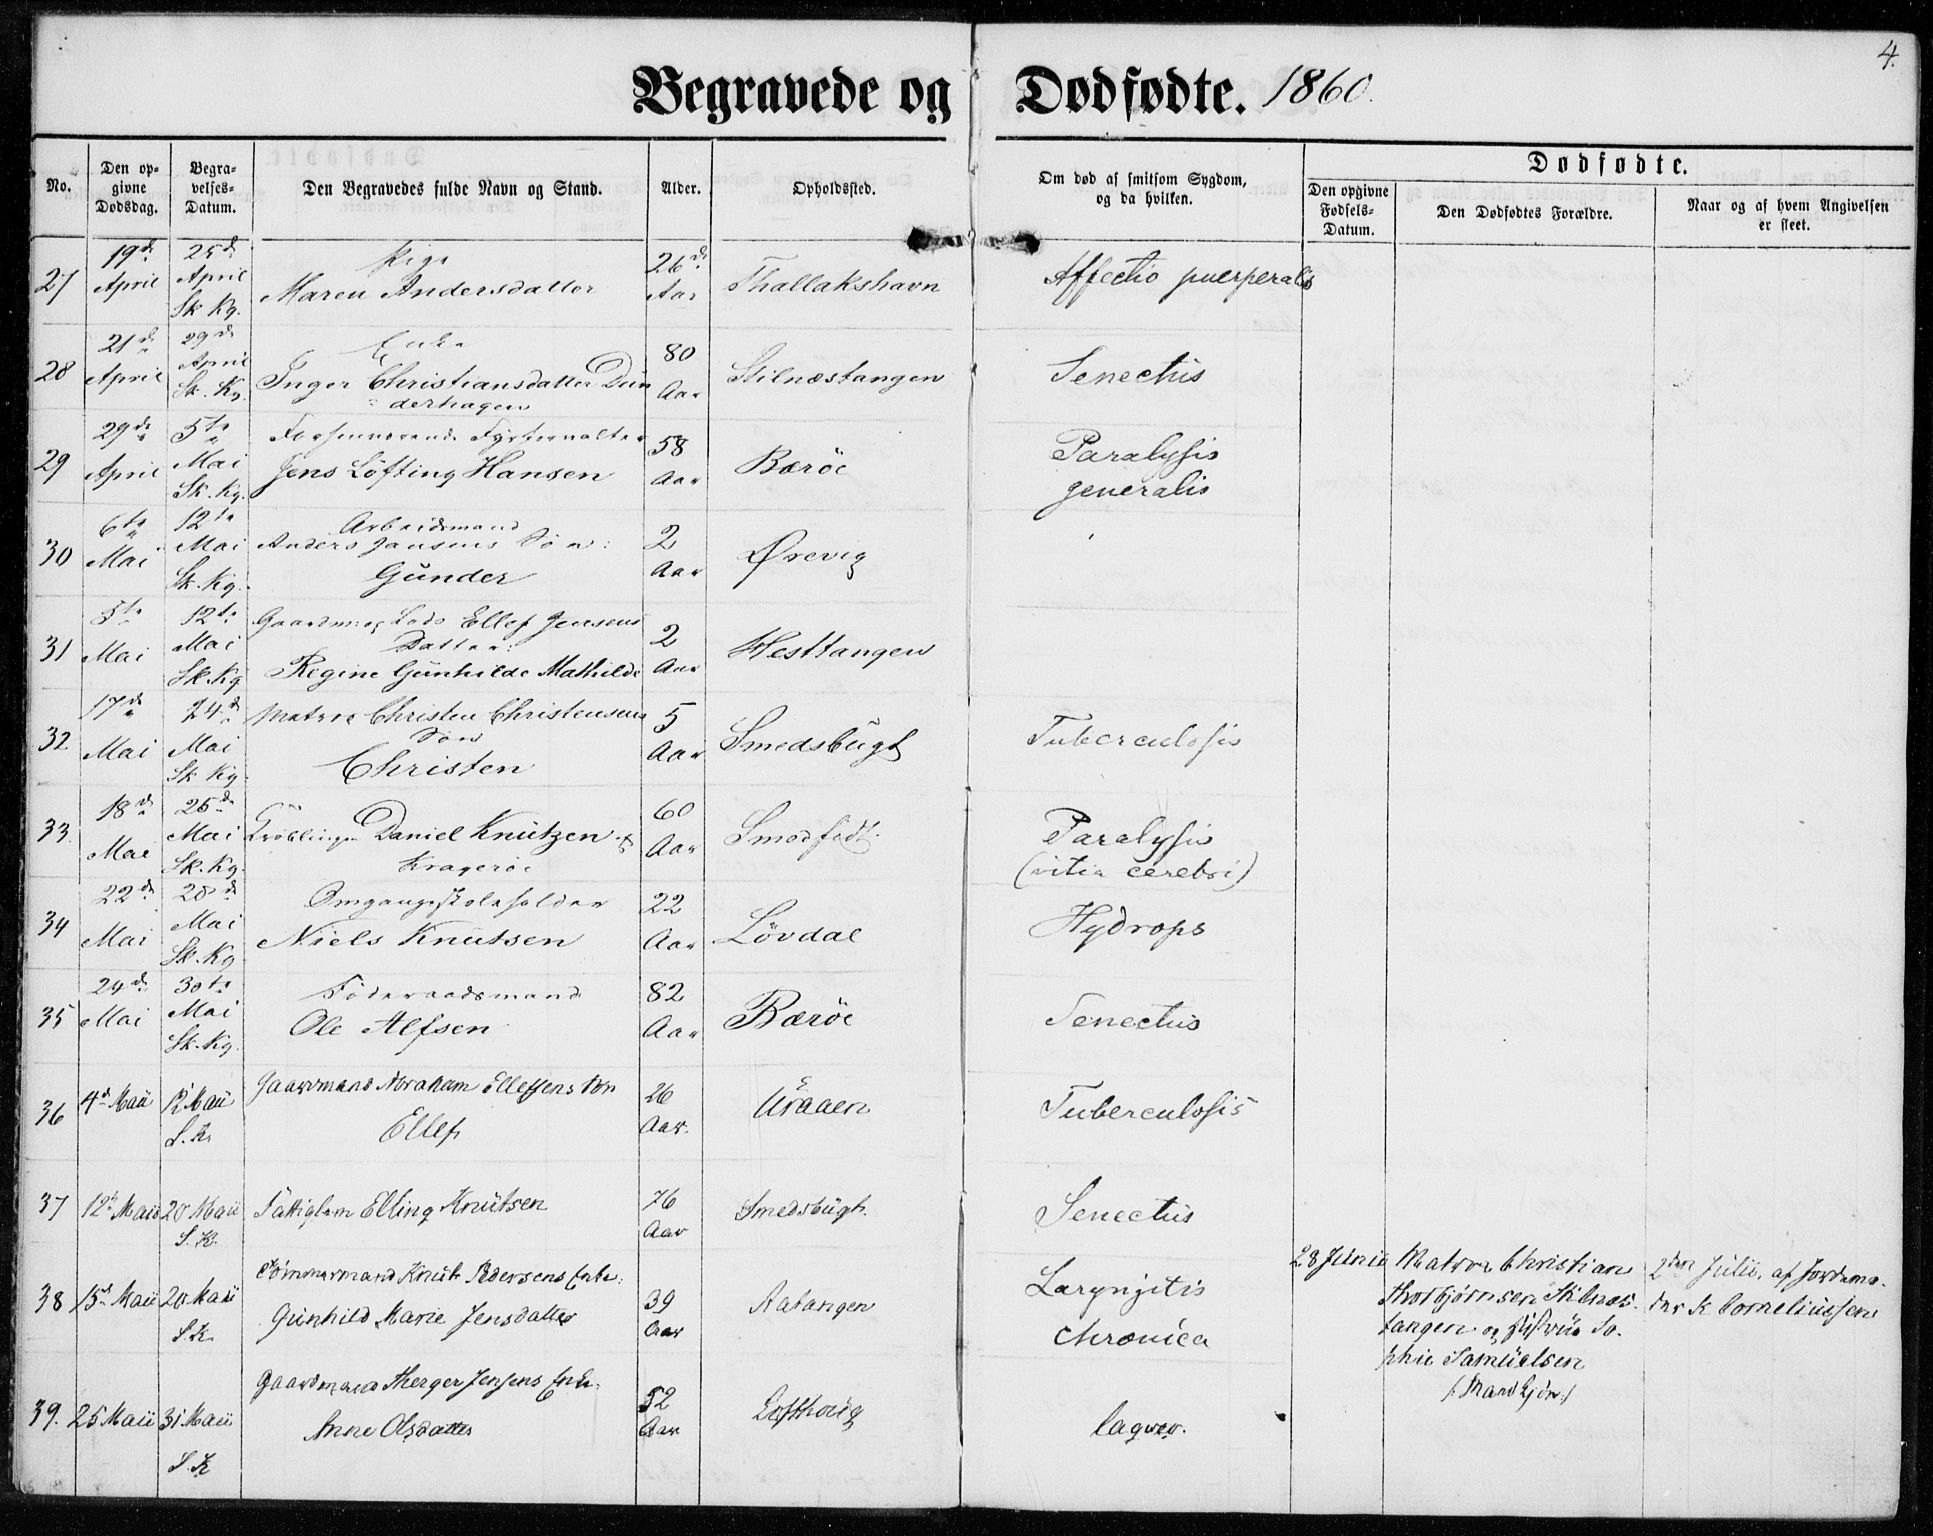 4.
Begravede og Dødfødte. 1860.
No.
Den opgivne Dødsdag.
Begravelses-Datum.
Den Begravedes fulde Navn og Stand.
Alder.
Opholdssted.
Om død af smitsom Sygdom, og da hvilken.
Dødfødte.
Den opgivne Fødsels-Datum.
Den Dødfødtes Forældre.
Naar og af hvem Angivelsen er skeet.
27 19de April 25de April Sk. Kg. Pige Maren Andersdatter 26de Aar Thallakshavn Affectio puerperalis
28 21de April 29de April Sk. Kg. Enke Inger Christiansdatter Dunderhagen 80 Aar Stilnæstangen Senectus
29 29de April 5te Mai Sk. Kg. Forhenværende Fyrforvalter Jens Löfting Hansen 58 Aar Baröe Paralysis generalis
30 6te Mai 12te Mai Sk. Kg. Arbeidsmand Anders Jansens Søn: Gunder 2 Aar Ørevig
31 5te Mai 12te Mai Sk. Kg. Gaardm: og Lods Ellef Jensens Datter: Regine Gunhilde Mathilde 2 Aar Hesttangen
32 17de Mai 24de Mai Sk. Kg. Matros Christen Christensens Søn Christen 5 Aar Smedsbugt Tuberculosis
33 18de Mai 25de Mai Sk. Kg. Daniel Knutzen af Kragerøe 60 Aar Paralysis (vitia cerebri)
34 22de Mai 28de Mai Sk. Kg. Omgangsskoleholder Niels Knutsen 22 Aar Lövdal Hydrops
35 24de Mai 30te Mai Sk. Kg. Föderaadsmand Ole Alfsen 82 Aar Baröe Senectus
36 4de Maii 12 Maii S. K. Gaardmand Abraham Ellefsens søn Ellef 26 Aar. Uraaen Tuberculosis
37 12te Maii 20 Maii S. K. Fattiglem Elling Knutsen 76 Aar Smedsbugt. Senectus
38 15de Maii 20 Maii S. K. Tømmermand Knut Pedersens Enke: Gunhild Marie Jensdatter 39 Aar Aatangen Laryngitis chronica
28 Junii Matros Christian Thorbjørnsen Stilnæstangen og Hustrue Sophie Samuelsen (: Mandkjøn :) 2den Julii, af Jordemoder K. Corneliussen
39. 25 Maii 31 Maii S. K Gaardmand Jensens Enke: Anne Olsdatter 52 Aar Lofthoug